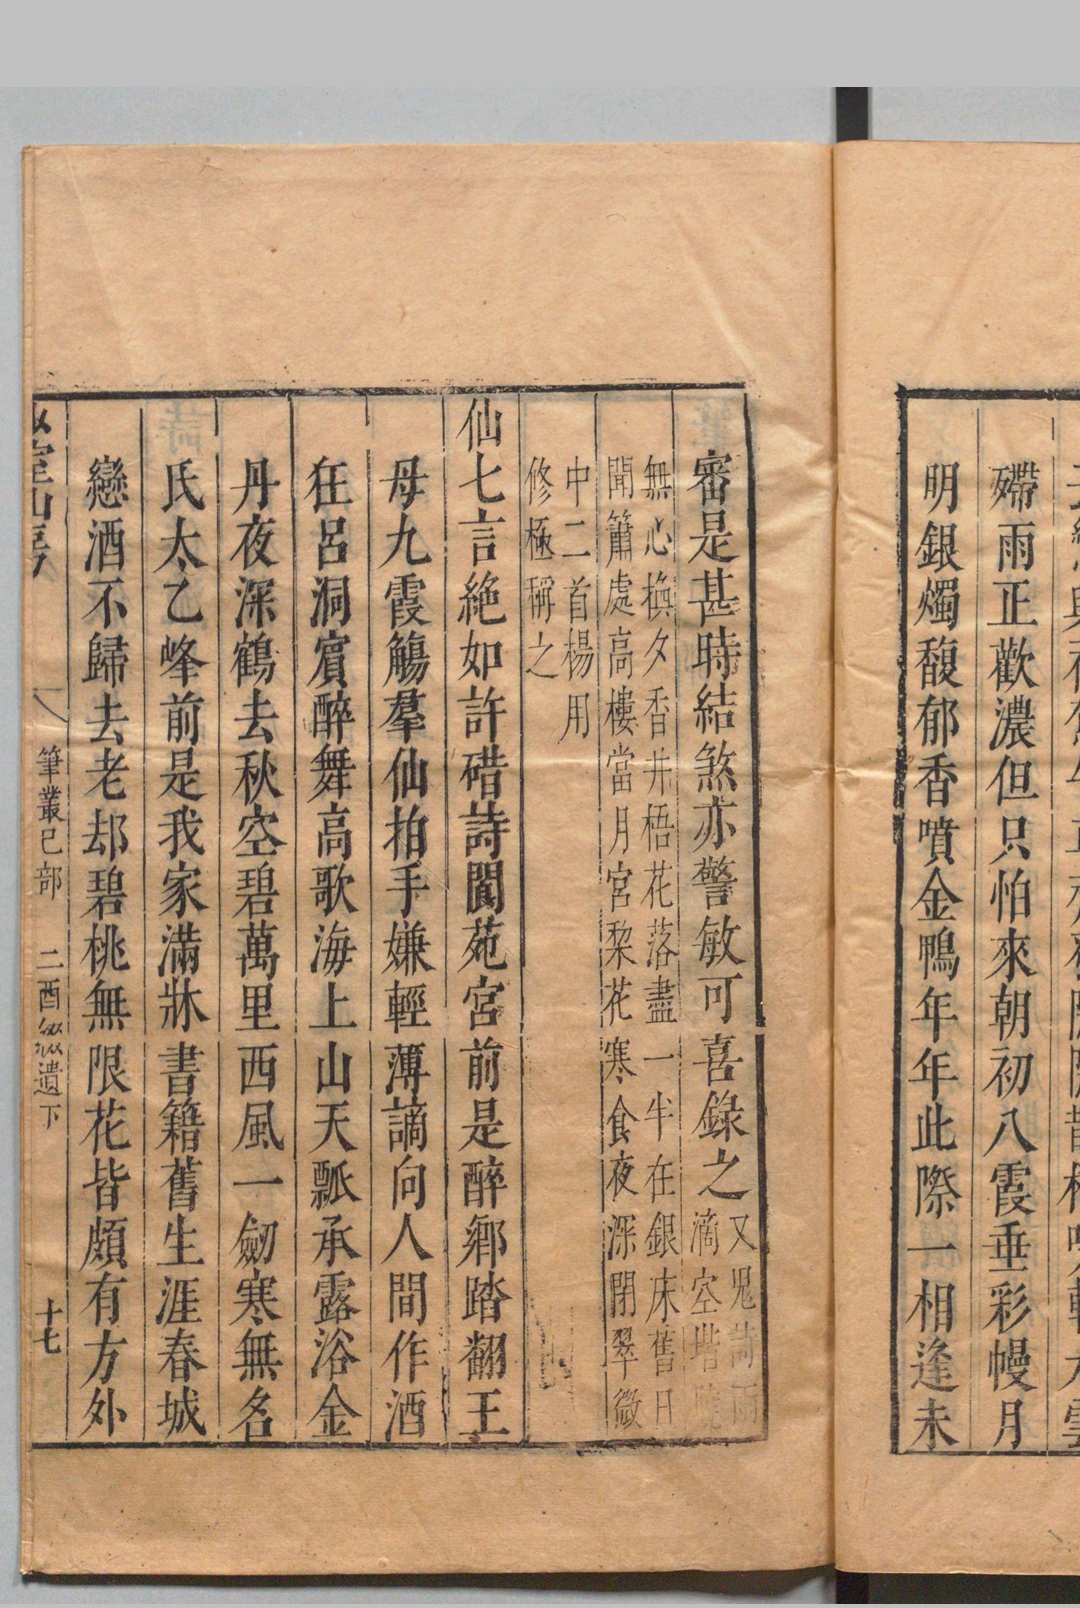 殢雨正歡濃但只怕來朝初八霞垂彩幔月
明銀燭馥郁香噴金鴨年年此際一相逢未
審是甚時結煞亦警敏可喜錄之
又鬼詩雨滴空堦曉
無心換夕香井梧花落盡一半在銀床舊日
聞簫處高樓當月宮梨花寒食夜深閉翠微
中二首楊用
修極稱之
仙七言絕如許碏詩閬苑宮前是醉鄉踏翻王
母九霞觴羣仙拍手嫌輕薄謫向人間作酒
狂呂洞賓醉舞高歌海上山天瓢承露浴金
丹夜深鶴去秋空碧萬里西風一劒寒無名
氏太乙峰前是我家滿牀書籍舊生涯春城
戀酒不歸去老却碧桃無限花皆頗有方外
筆叢己部 二酉綴遺下 十七